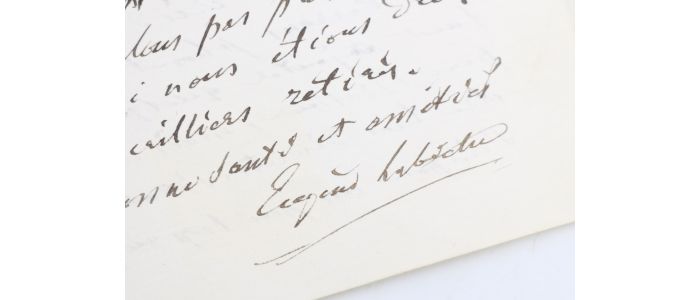 lous pas p
i nous étions
quilliers retirés.
onne santé et amitiés
Eugène Labiche